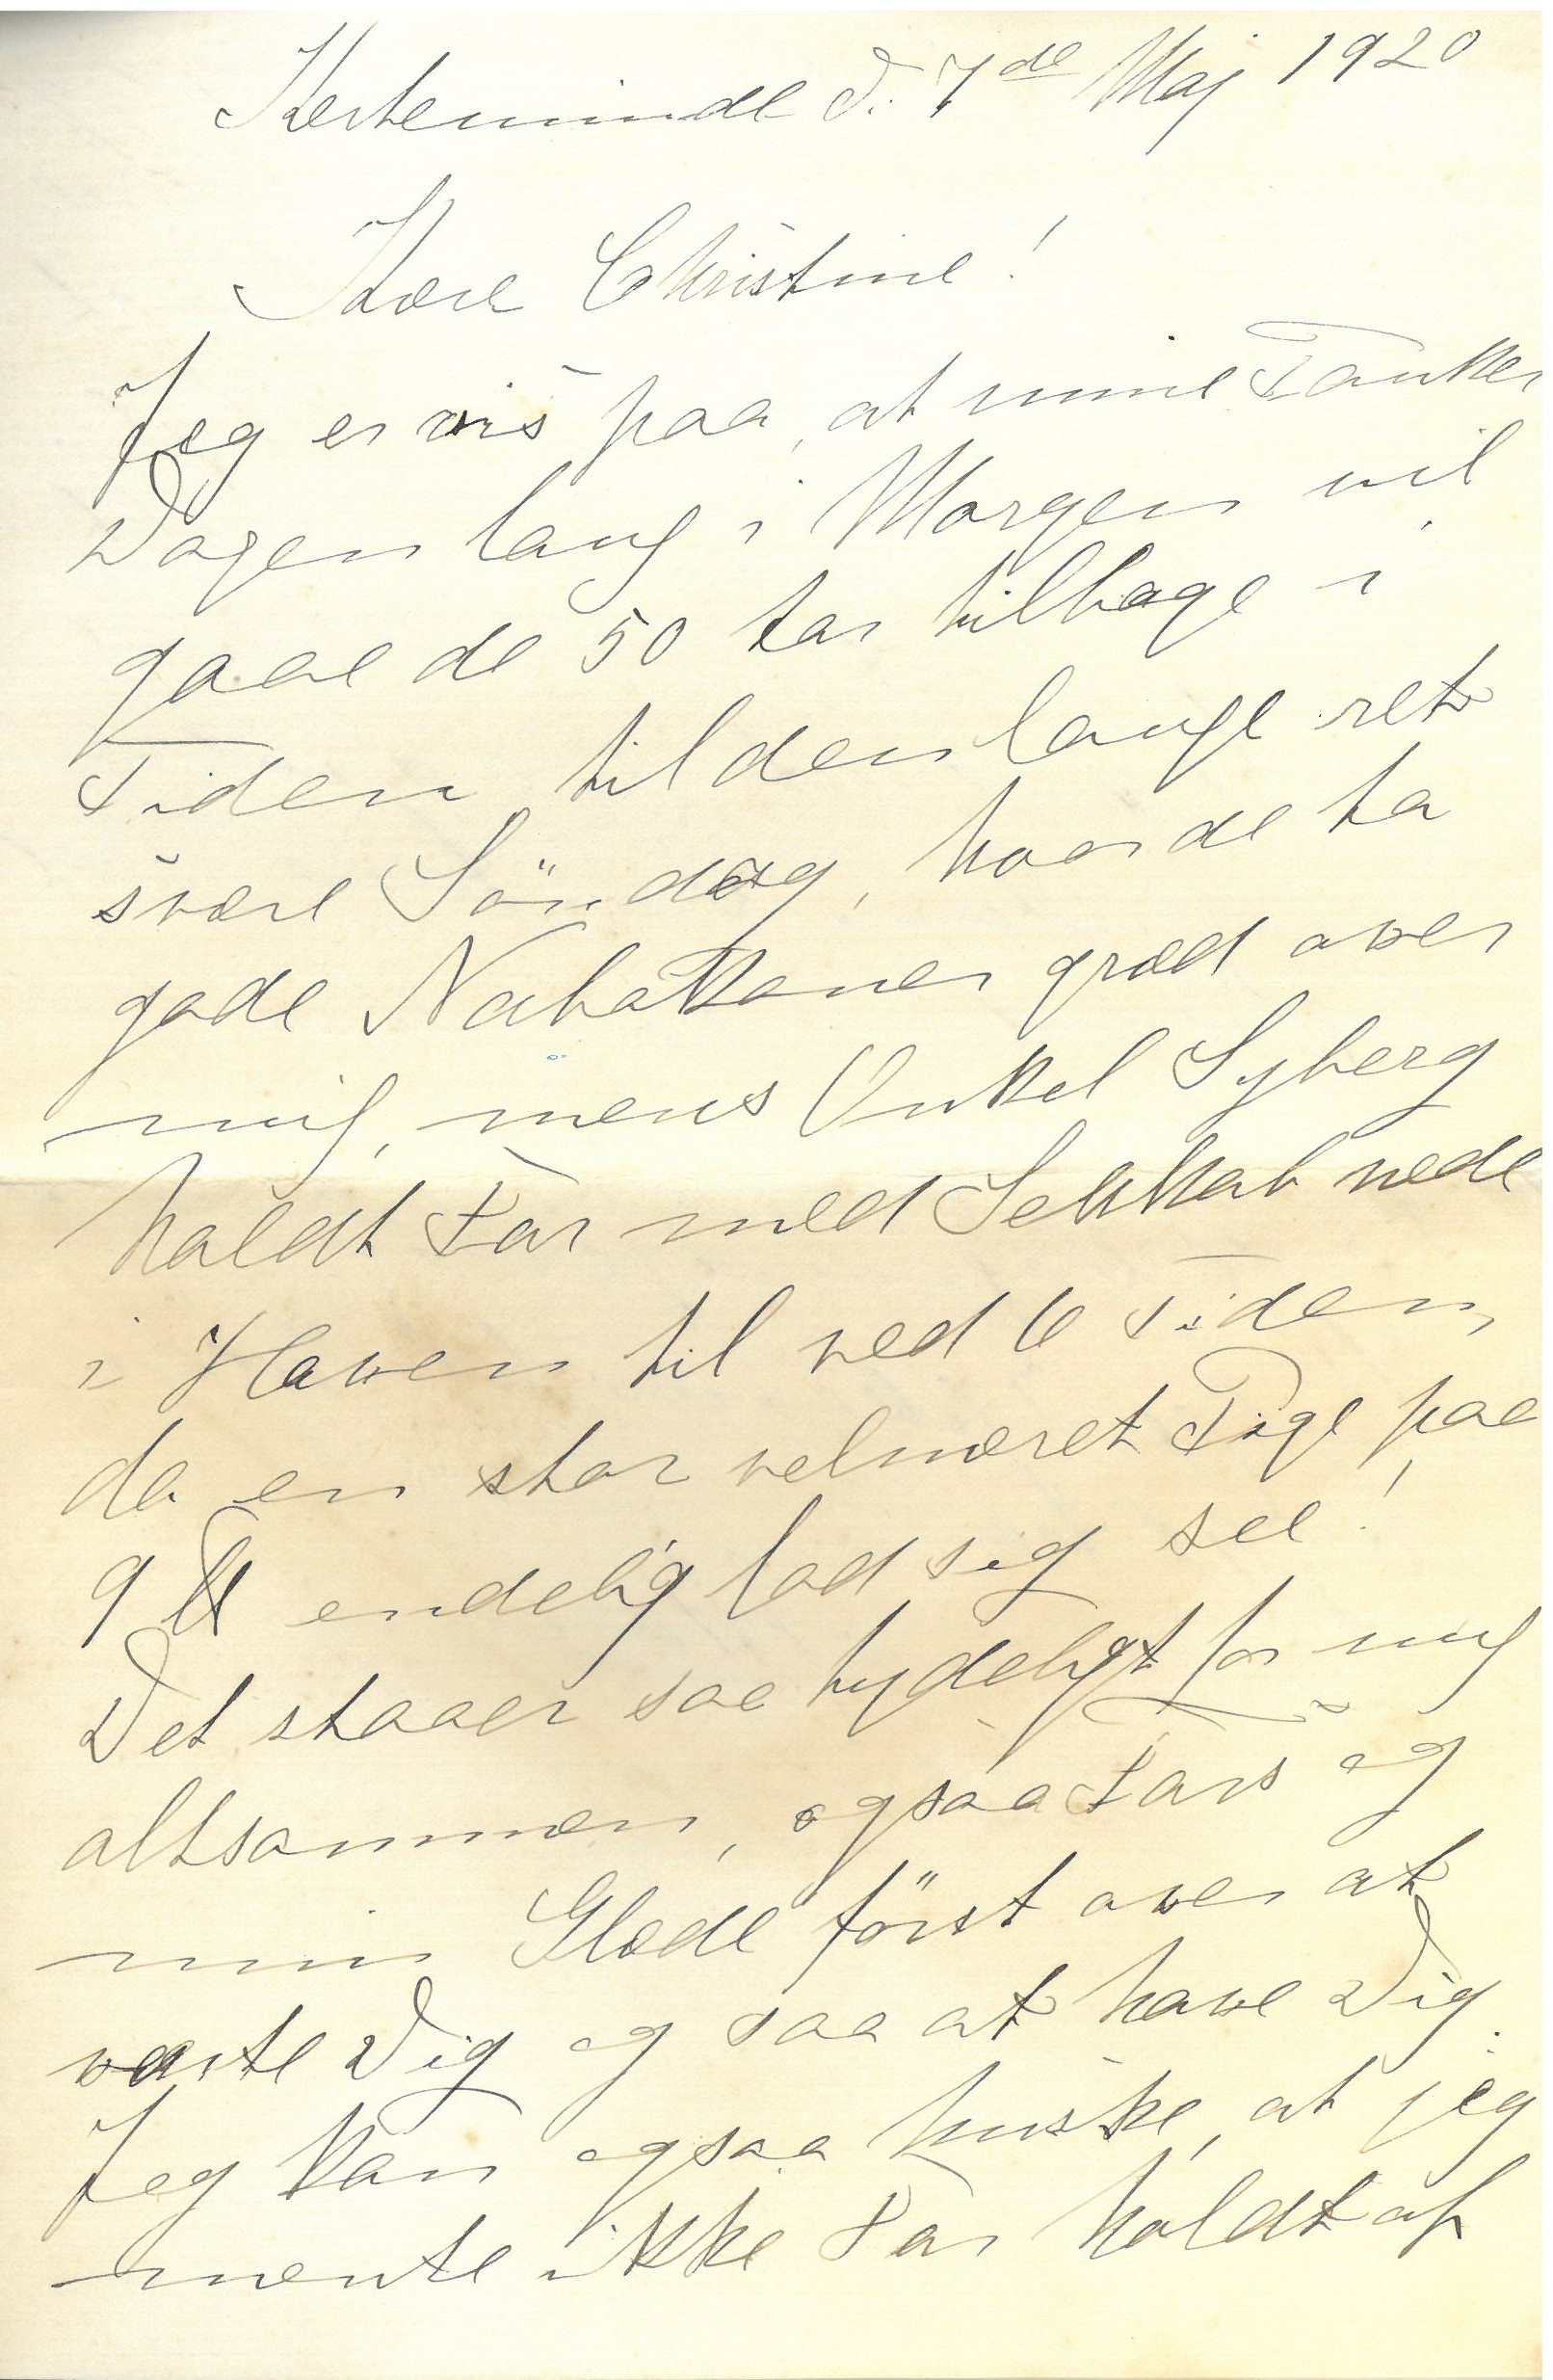 Kerteminde d. 7de Maj 1920
Kære Christine!
Jeg er vis paa, at mine Tanker
Dagen lang i Morgen vil
gaae de 50 Aar tilbage i
Tiden til den lange ret
svære Söndag, hvor de to
gode Nabokoner græd over
mig, mens Onkel Syberg
holdt Far med Selskab nede
i Haven til ved 6 Tiden,
da en stor velnæret Pige paa
9 ℔ endelig lod sig see!
Det staaer saa tydeligt for mig
altsammen, ogsaa Fars og
min Glæde först over at
vente Dig og saa at have Dig.
Jeg kan ogsaa huske, at jeg
mente ikke Far holdt af